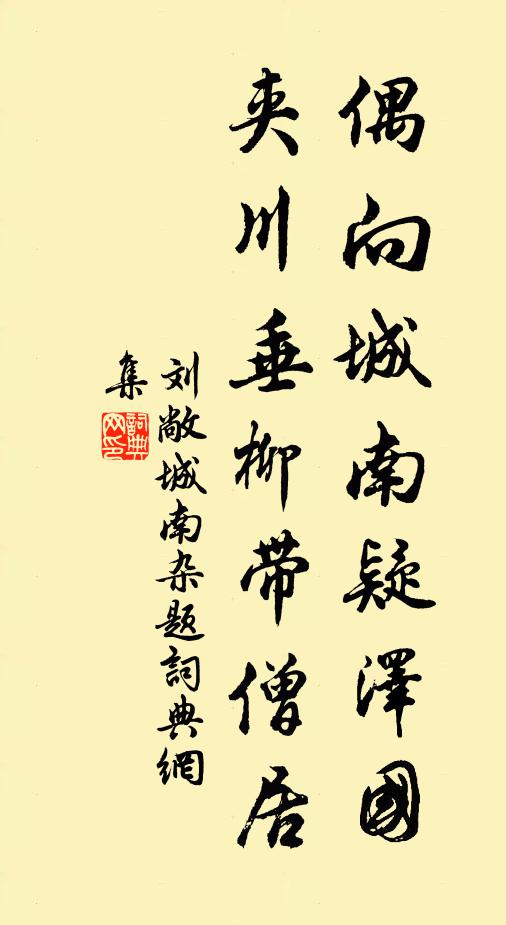 偶向城南疑澤國
夾川垂柳帶僧居
刘敞城南杂题詞典網
集
詞典
网印